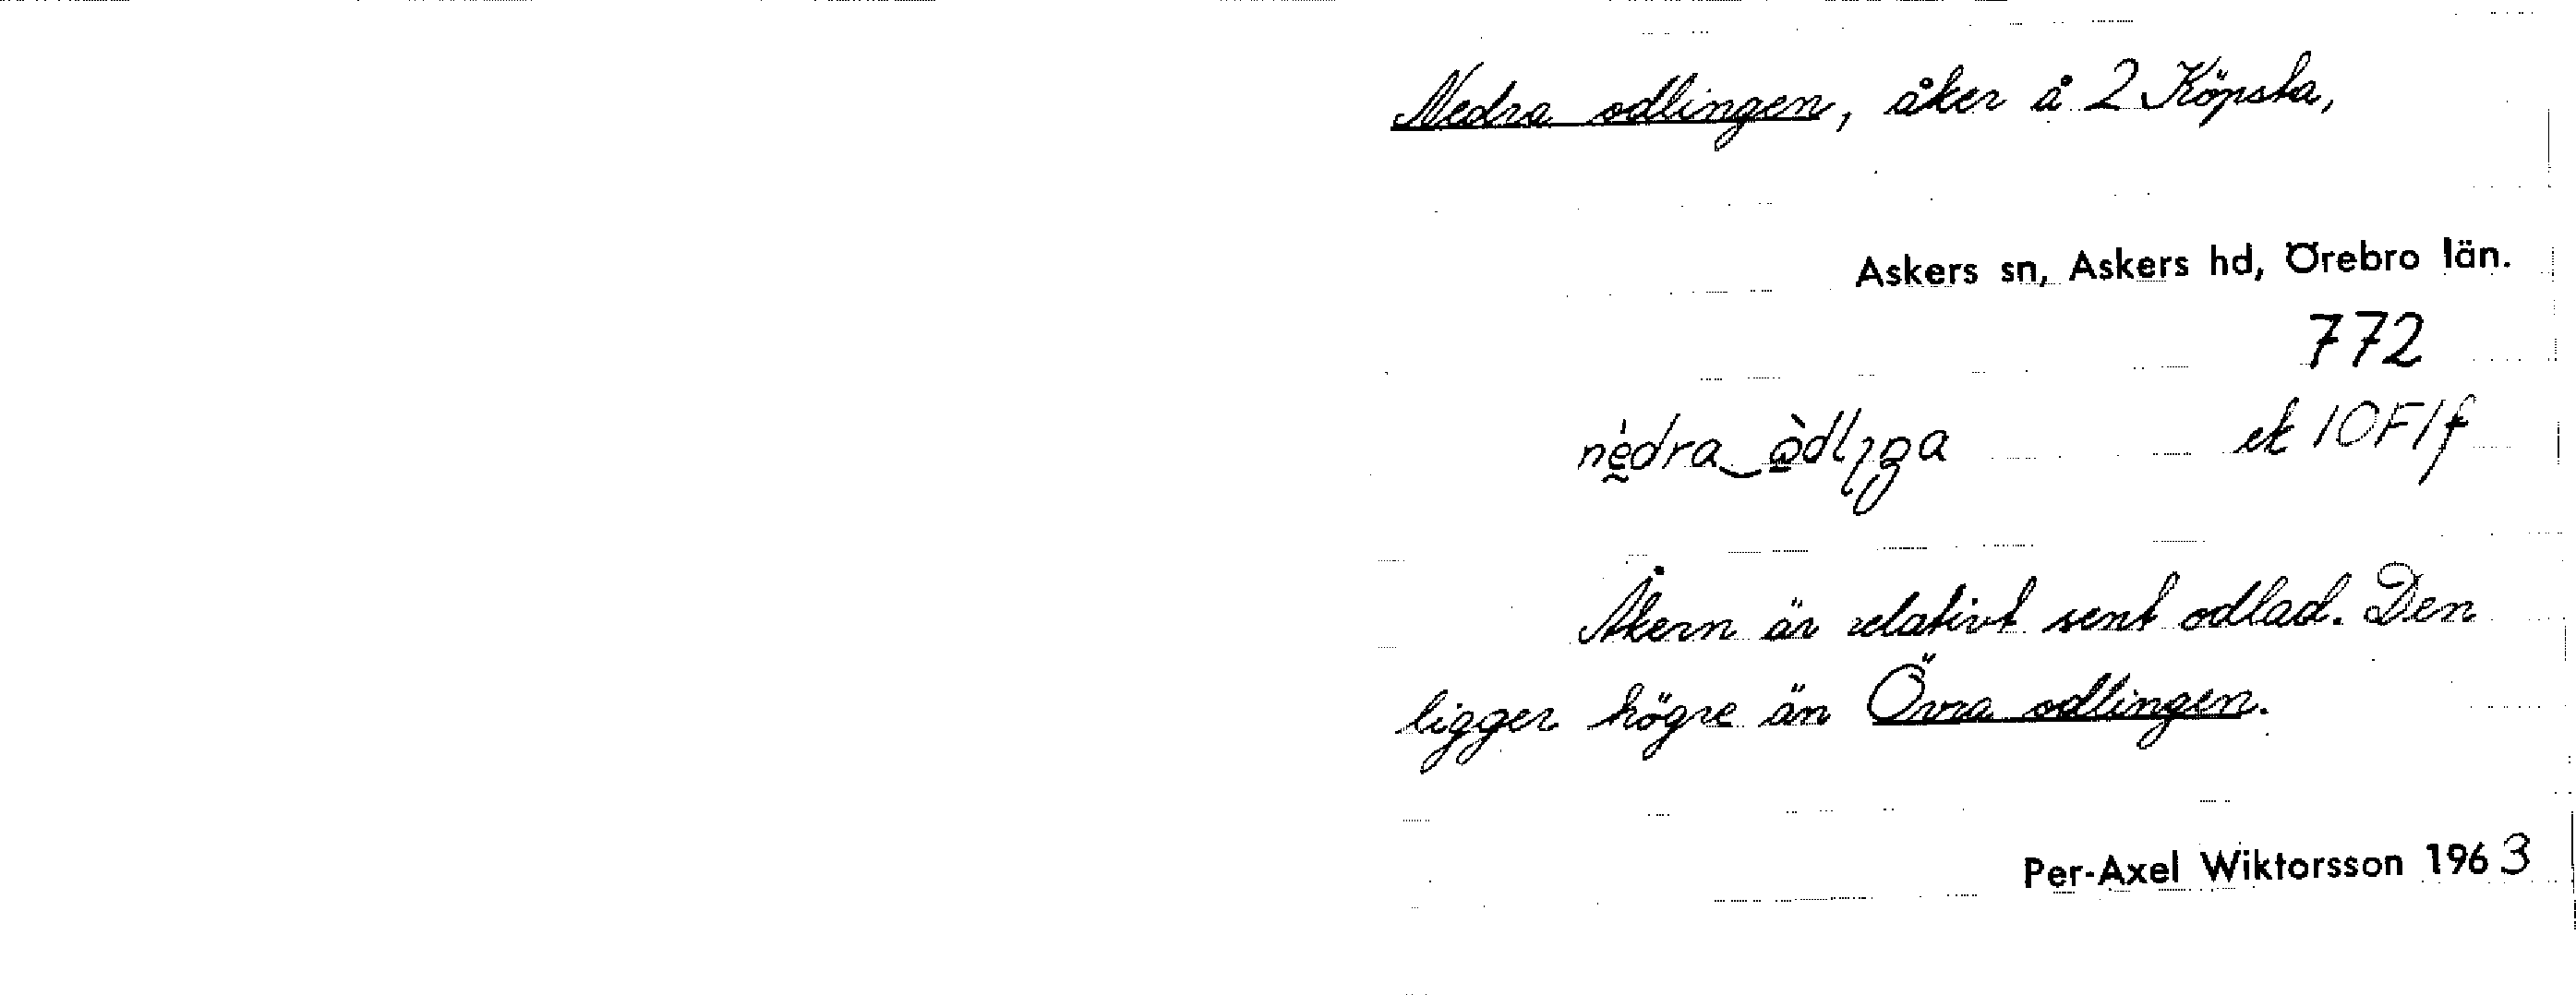 Nedra odlingen, åker å 2 Köpsta,
Askers sn, Askers hd, Örebro län.
772
ek 10F1f
Åkern är relativt sent odlad. Den
ligger högre än Övra odlingen.
Per-Axel Wiktorsson 1963